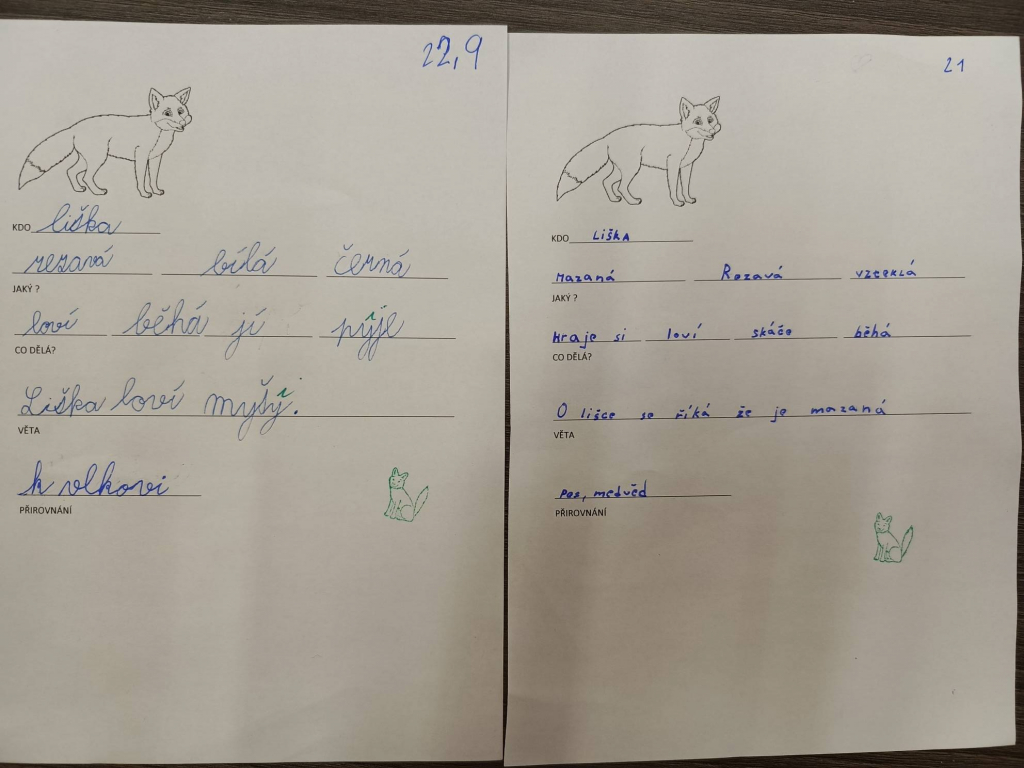 22,9
KDO liška
rezavá bílá černá
JAKÝ ?
loví běhá jí pyje
CO DĚLÁ?
Liška loví myšy.
VĚTA
k vlkovi
PŘIROVNÁNÍ
21
KDO LIŠKA
mazaná Rezavá vzteklá
JAKÝ ?
Hraje si loví skáče běhá
CO DĚLÁ?
O lišce se říká že je mazaná
VĚTA
pes, medvěd
PŘIROVNÁNÍ